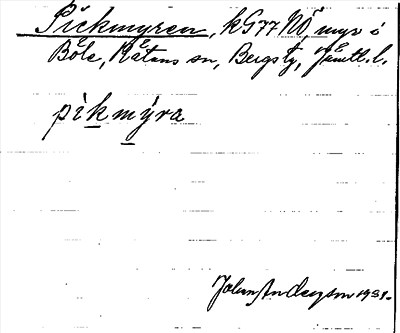 Pickmyren, kG77NÖ, myr i
Böle, Rätans sn, Bergs tg, Jämtl. l.
pìkmýra
Johan Anderson 1931.